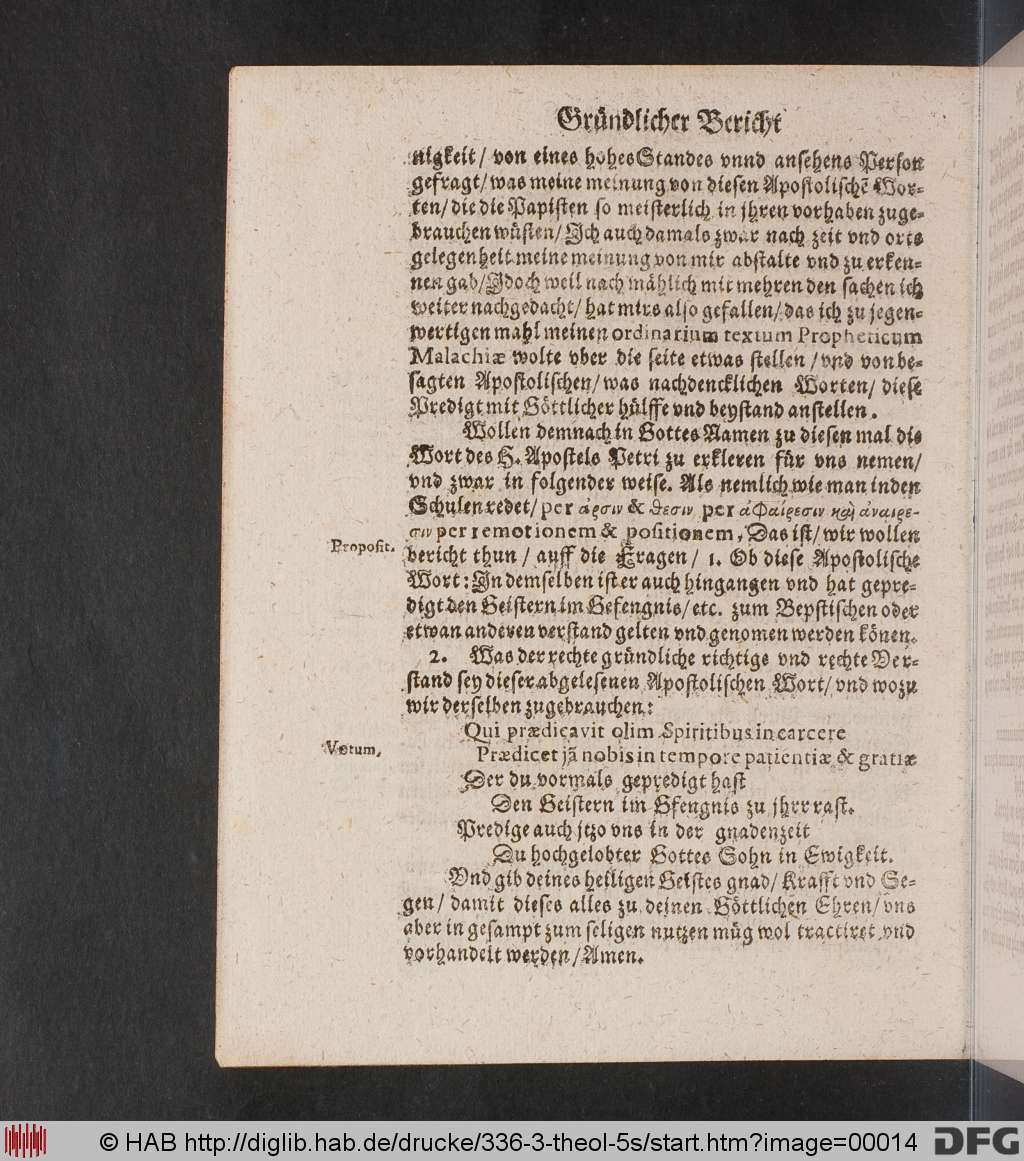 Gründlicher Bericht
nigkeit/ von eines hohes Standes vnnd ansehens Person
gefragt/ was meine meinung von diesen Apostolischē Wor-
ten/ die die Papisten so meisterlich in jhren vorhaben zuge-
brauchen wüsten/ Ich auch damals zwar nach zeit vnd orts
gelegenheit meine meinung von mir abstalte vnd zu erken-
nen gab/ Idoch weil nach mählich mit mehren den sachen ich
weiter nachgedacht/ hat mirs also gefallen/ das ich zu jegen-
wertigen mahl meinen ordinarium textum Propheticum
Malachiæ wolte vber die seite etwas stellen/ vnd von be-
sagten Apostolischen/ was nachdencklichen Worten/ diese
Predigt mit Göttlicher hülffe vnd beystand anstellen.
Wollen demnach in Gottes Namen zu diesen mal die
Wort des H. Apostels Petri zu erkleren für vns nemen/
vnd zwar in folgender weise. Als nemlich wie man in den
Schulen redet/ per ἄρσιν & θεσιν per ἀφαίρεσιν καὶ ἀναιρε-
σιν per remotionem & positionem, Das ist/ wir wollen
Proposit.
bericht thun/ auff die Fragen/ 1. Ob diese Apostolische
Wort: In demselben ist er auch hingangen vnd hat gepre-
digt den Geistern im Gefengnis/ etc. zum Bepstischen oder
etwan anderen verstand gelten vnd genomen werden könen.
2. Was der rechte gründliche richtige vnd rechte Ver-
stand sey dieser abgelesenen Apostolischen Wort/ vnd wozu
wir derselben zugebrauchen:
Qui prædicavit olim Spiritibus in carcere
Votum,
Prædicet jā nobis in tempore patientiæ & gratiæ
Der du vormals gepredigt hast
Den Geistern im Gfengnis zu jhrr rast.
Predige auch jtzo vns in der gnadenzeit
Du hochgelobter Gottes Sohn in Ewigkeit.
Vnd gib deines heiligen Geistes gnad/ Krafft vnd Se-
gen/ damit dieses alles zu deinen Göttlichen Ehren/ vns
aber in gesampt zum seligen nutzen müg wol tractiret vnd
vorhandelt werden/ Amen.
© HAB http://diglib.hab.de/drucke/336-3-theol-5s/start.htm?image=00014
DFG